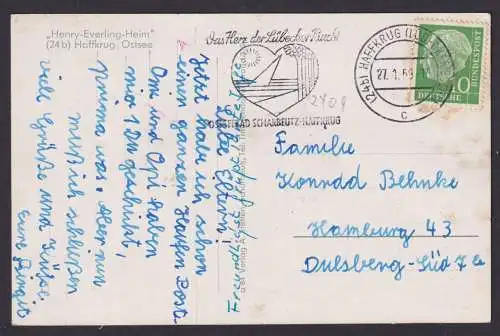 "Henry-Everling-Heim"
(24b) Haffkrug, Ostsee
Liebe Eltern!
Jetzt habe ich schon
einen ganzen Haufen Post.
Omi und Opi haben
mir 1 DM geschickt,
prima was. Aber nun
muß ich schließen
viele Grüße und Küsse
Eure
Das Herz der Lübecker Bucht
OSTSEEBAD SCHARBEUTZ-HAFFKRUG
2409
(24b) HAFFKRUG
27. 1. 59
c
10
DEUTSCHE BUNDESPOST
Familie
Konrad Behnke
Hamburg 43
Dulsberg-Süd 7a